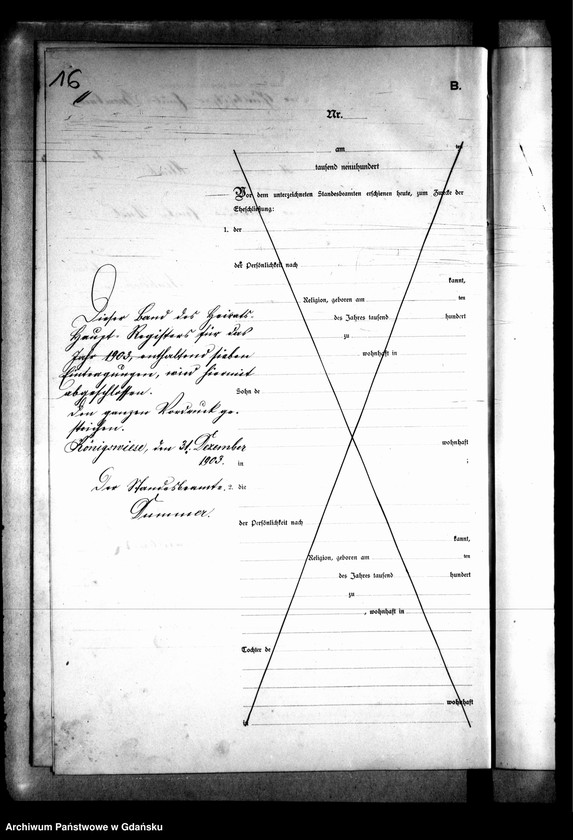 16
B.
Nr.
am ten
tausend neunhundert
Vor dem unterzeichneten Standesbeamten erschienen heute, zum Zwecke der
Eheschließung:
1. der
der Persönlichkeit nach
kannt,
Religion, geboren am ten
des Jahres tausend hundert
zu
wohnhaft in
Dieser Band des Heirats-
Haupt-Registers für das
Jahr 1903, enthaltend sieben
Eintragungen, wird hiermit
abgeschlossen.
Den ganzen Vordruck ge-
strichen.
Königswiese, den 31. Dezember
1903.
Der Standesbeamte.
Dummer.
Sohn de
wohnhaft
in ;
2. die
der Persönlichkeit nach
kannt,
Religion, geboren am ten
des Jahres tausend hundert
zu
, wohnhaft in
Tochter de
wohnhaft
in
Archiwum Państwowe w Gdańsku